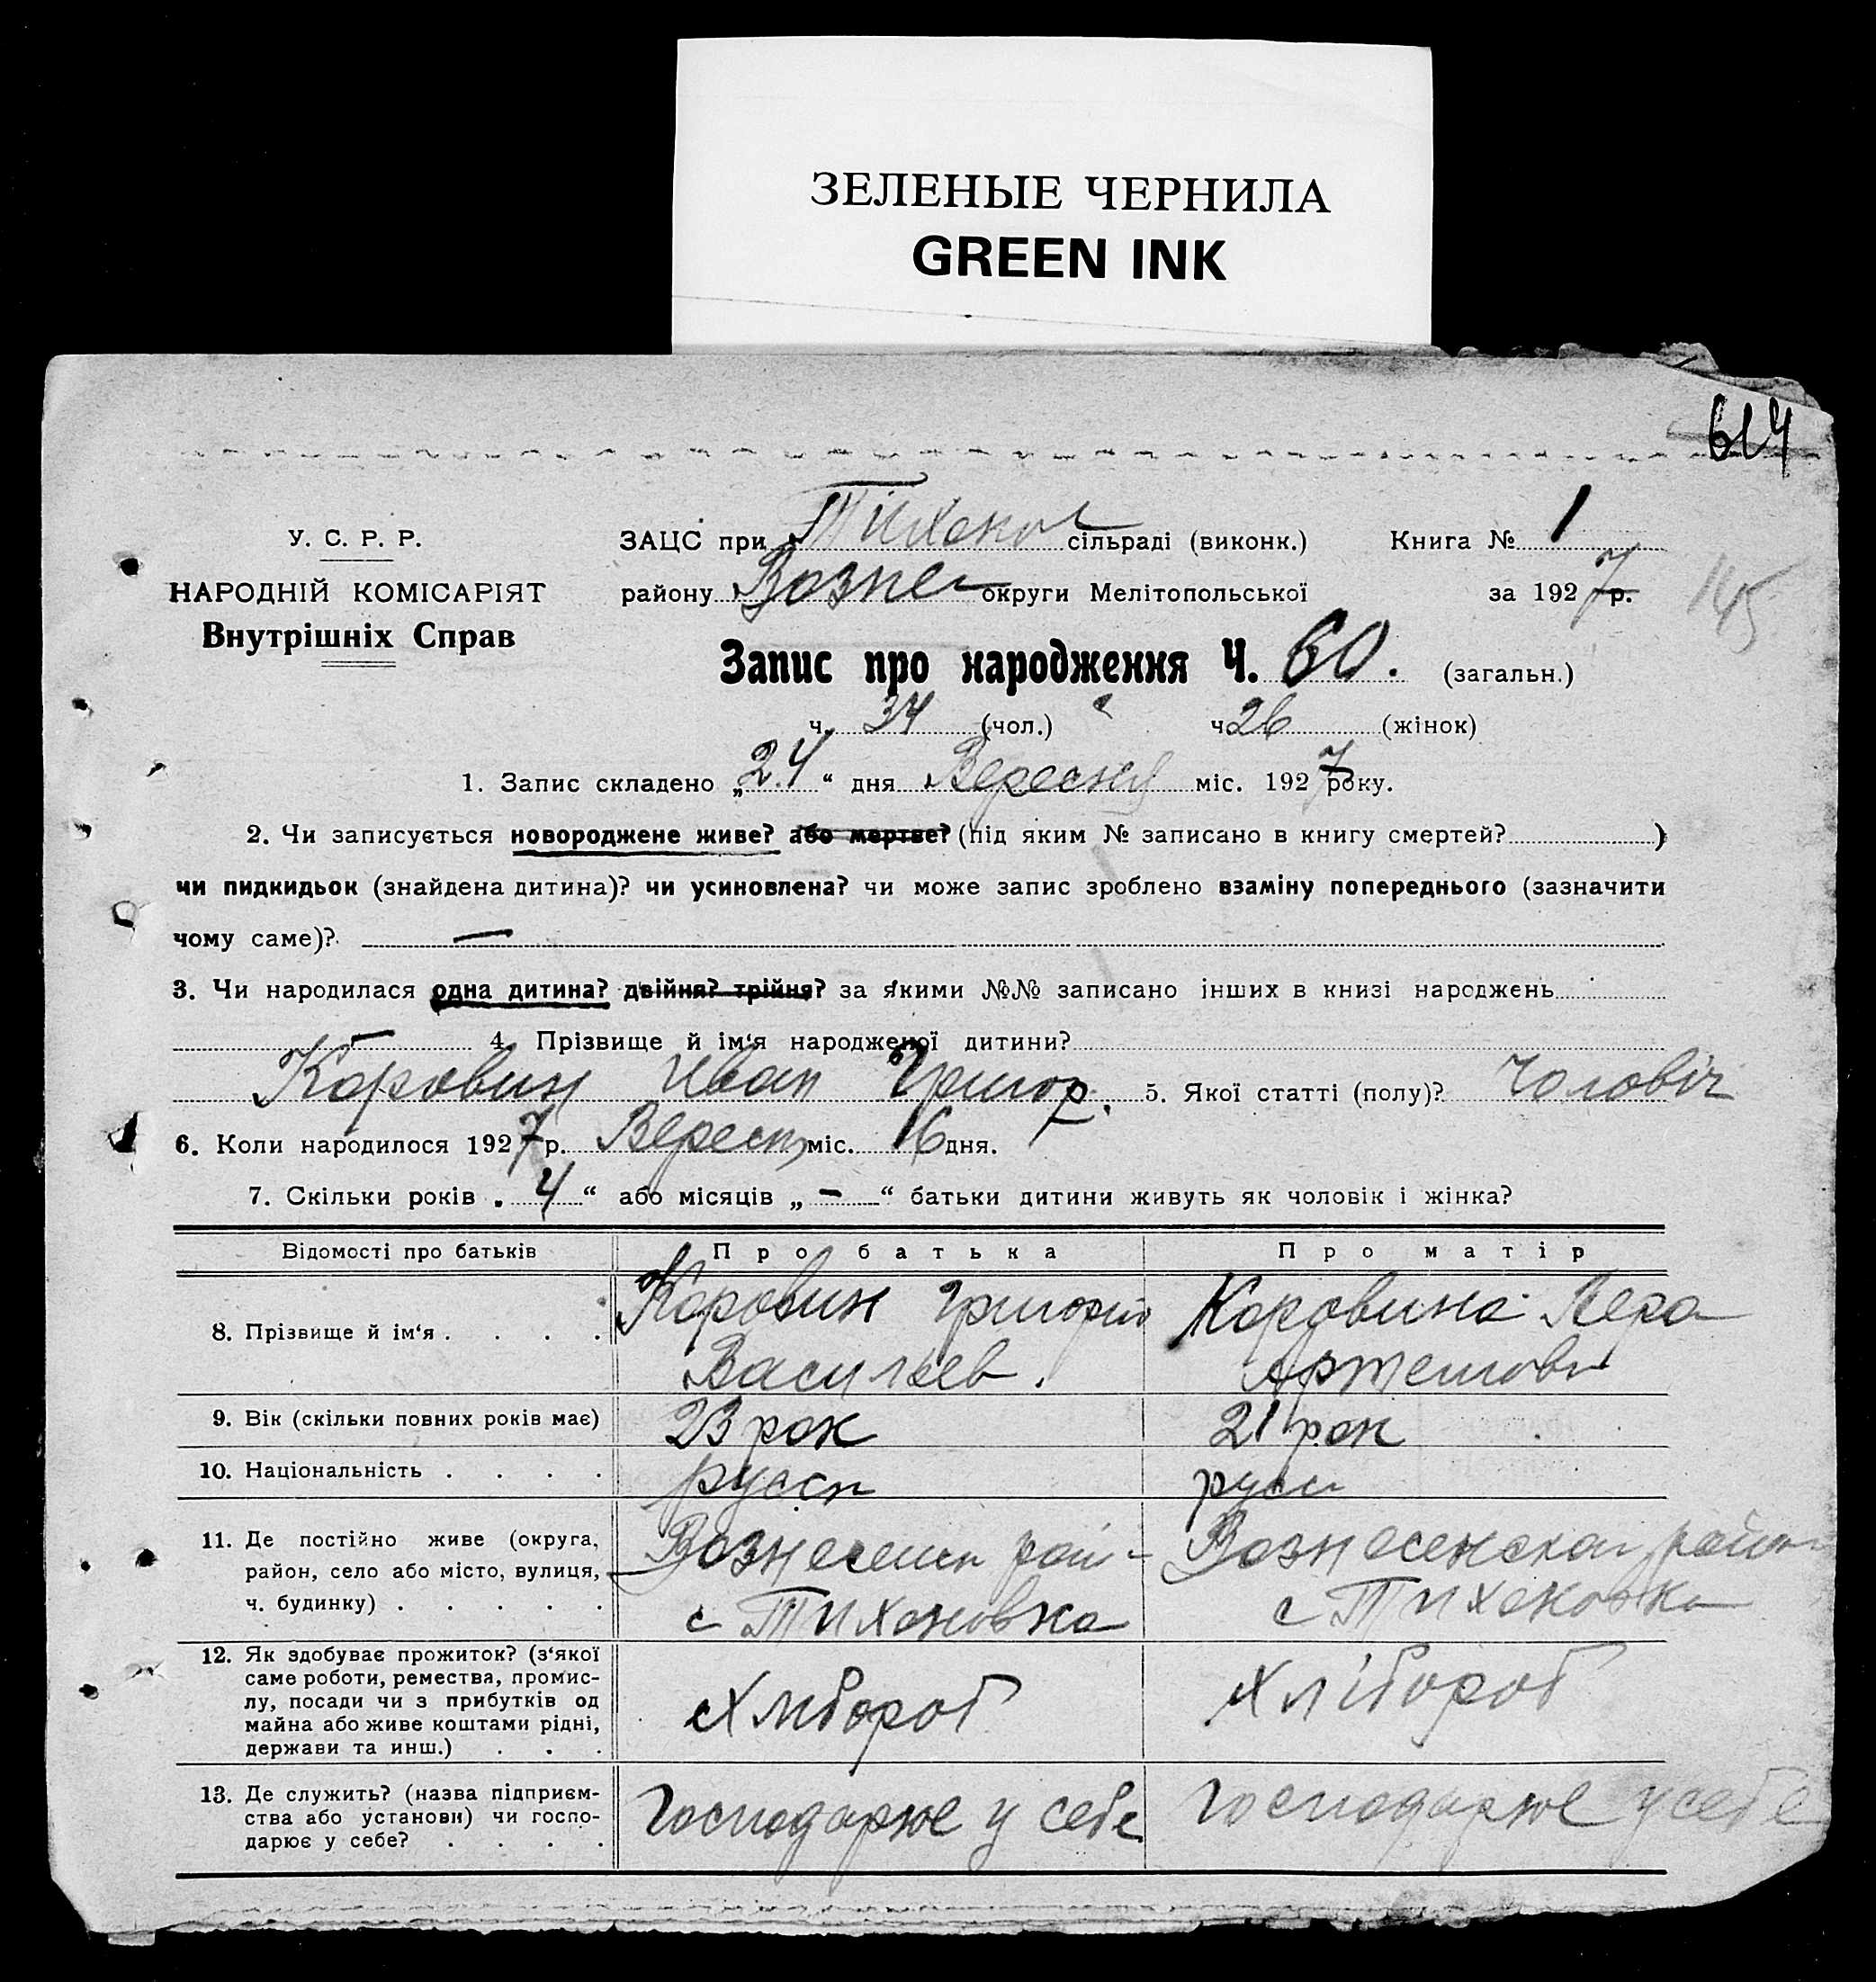 ЗЕЛЕНЫЕ ЧЕРНИЛА
GREEN INK
614
У. С. Р. Р.
НАРОДНІЙ КОМІСАРІЯТ
Внутрішніх Справ
ЗАЦС при Тихонов сільраді (виконк.) Книга № 1
району Вознес округи Мелітопольської за 1927 р.
145
Запис про народження Ч. 60. (загальн.)
ч. 34 (чол.) ч 26 (жінок)
1. Запис складено „24“ дня Вересня міс. 1927 року.
2. Чи записується новороджене живе? або мертве? (під яким № записано в книгу смертей? )
чи пидкидьок (знайдена дитина)? чи усиновлена? чи може запис зроблено взаміну попереднього (зазначити
чому саме)? —
3. Чи народилася одна дитина? двійня? трійня? за якими №№ записано інших в книзі народжень
— 4. Прізвище й ім‘я народженої дитини?
Коровин Иван Григор. 5. Якої статті (полу)? Чоловіч
6. Коли народилося 1927 р. Вересн міс. 16 дня.
7. Скільки років „4“ або місяців „—“ батьки дитини живуть як чоловік і жінка?
Відомості про батьків Про батька Про матір
8. Прізвище й ім‘я . . . . Коровин Григорий Васильев. Коровина Вера Артемовн
9. Вік (скільки повних років має) 23 рок 21 рок
10. Національність . . . . русск русск
11. Де постійно живе (округа,
район, село або місто, вулиця,
ч. будинку) . . . . .
Вознесенск рай-
с Тихоновка
Вознесенска район
с Тихоновка
12. Як здобуває прожиток? (з‘якої
саме роботи, ремества, промис-
лу, посади чи з прибутків од
майна або живе коштами рідні,
держави та инш.) . . .
Хлібороб
Хлібороб
13. Де служить? (назва підприєм-
ства або установи) чи госпо-
дарює у себе? . . . .
Господарює у себе
Господарює у себе